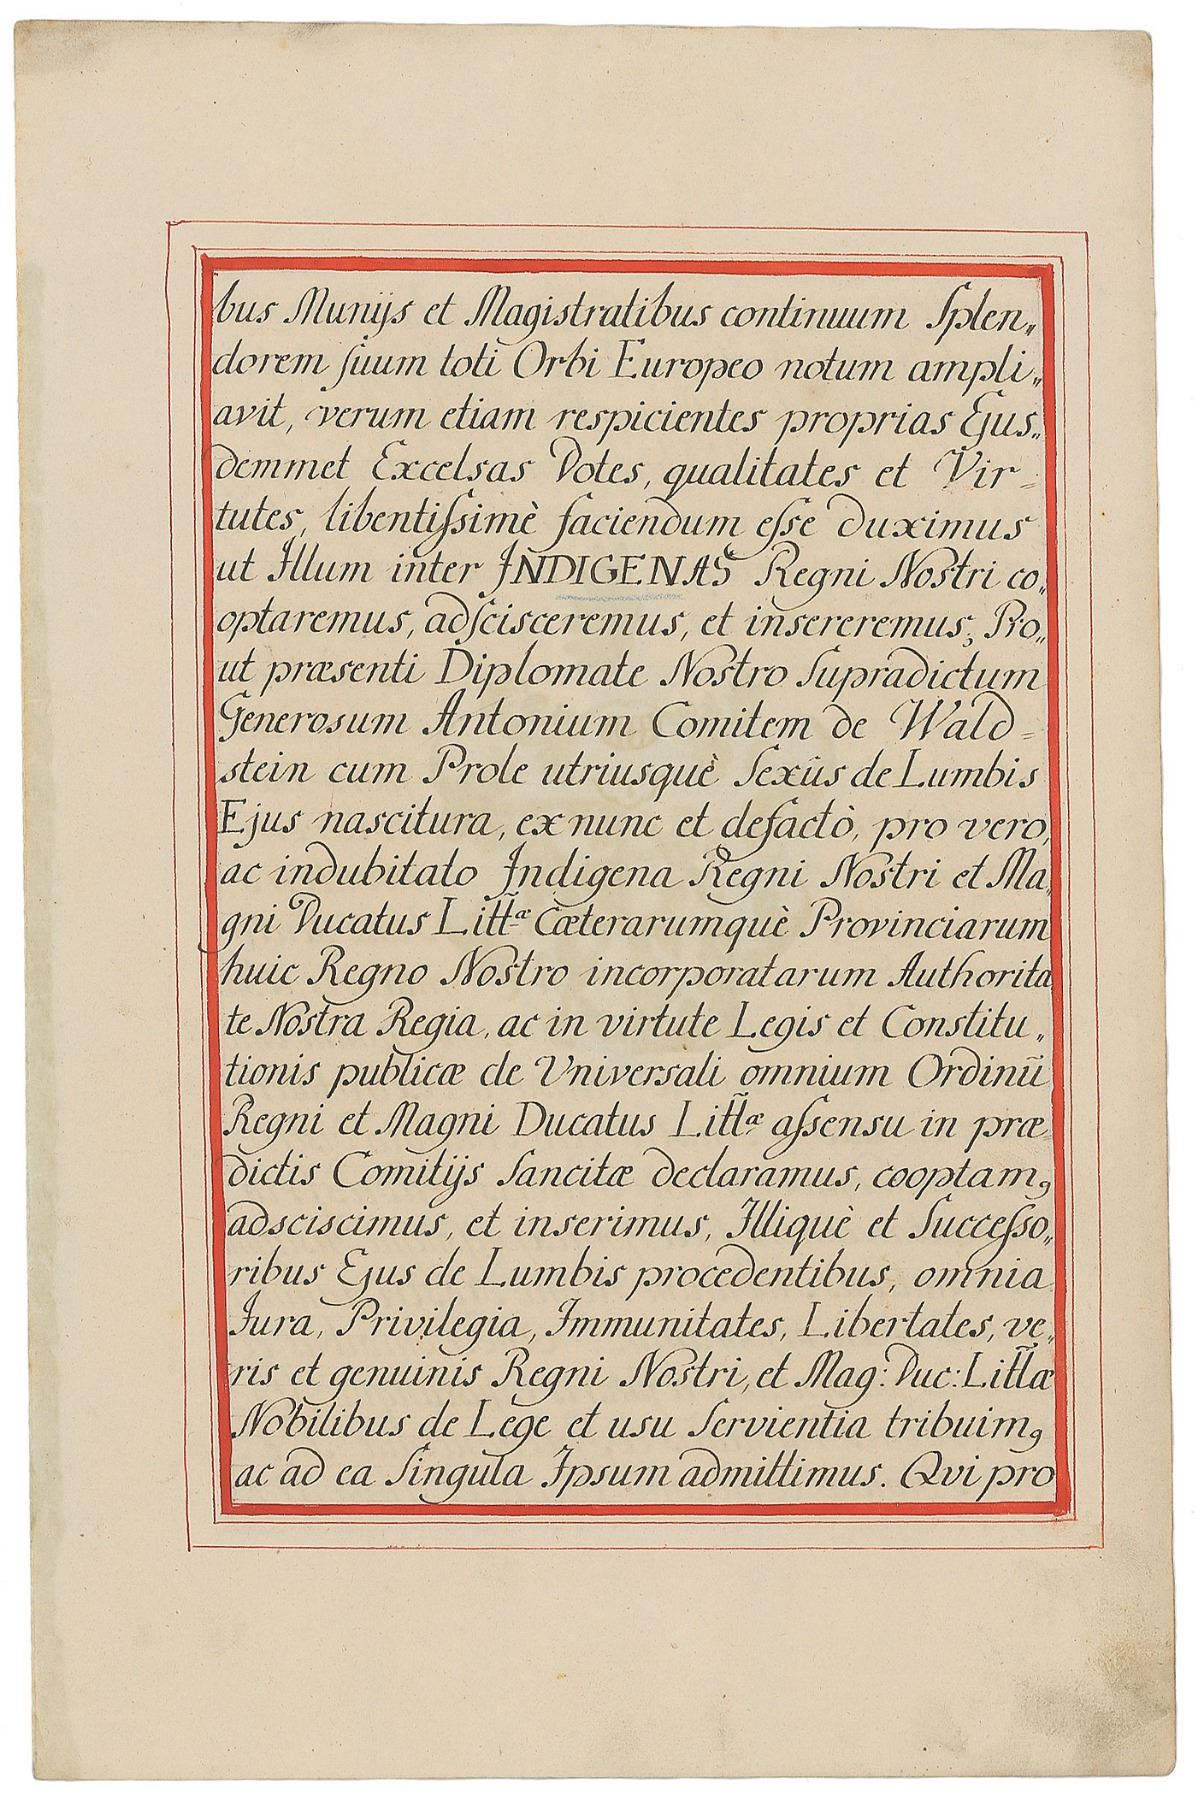 bus Munijs et Magistratibus continuum Splen„
dorem suum toti Orbi Europeo notum ampli„
avit, verum etiam respicientes proprias Ejus„
demmet Excelsas Dotes, qualitates et Vir=
tutes, libentissimè faciendum esse duximus
ut Illum inter INDIGENAS Regni Nostri co„
optaremus, adscisceremus, et insereremus; Pro„
ut præsenti Diplomate Nostro Supradictum
Generosum Antonium Comitem de Wald=
stein cum Prole utriusquè Sexûs de Lumbis
Ejus nascitura, ex nunc et defactò, pro vero,
ac indubitato Indigena Regni Nostri et Ma„
gni Ducatus Littæ Cæterarumquè Provinciarum
huic Regno Nostro incorporatarum Authorita
te Nostra Regia, ac in virtute Legis et Constitu„
tionis publicæ de Universali omnium Ordinū
Regni et Magni Ducatus Littæ assensu in præ
dictis Comitijs Sancitæ declaramus, cooptamꝰ
adsciscimus, et inserimus, Illiquè et Successo„
ribus Ejus de Lumbis procedentibus, omnia
Jura, Privilegia, Immunitates, Libertates, ve„
ris et genuinis Regni Nostri, et Mag: Duc: Littæ
Nobilibus de Lege et usu Servientia tribuimꝰ
ac ad ea Singula Ipsum admittimus. Qvi pro